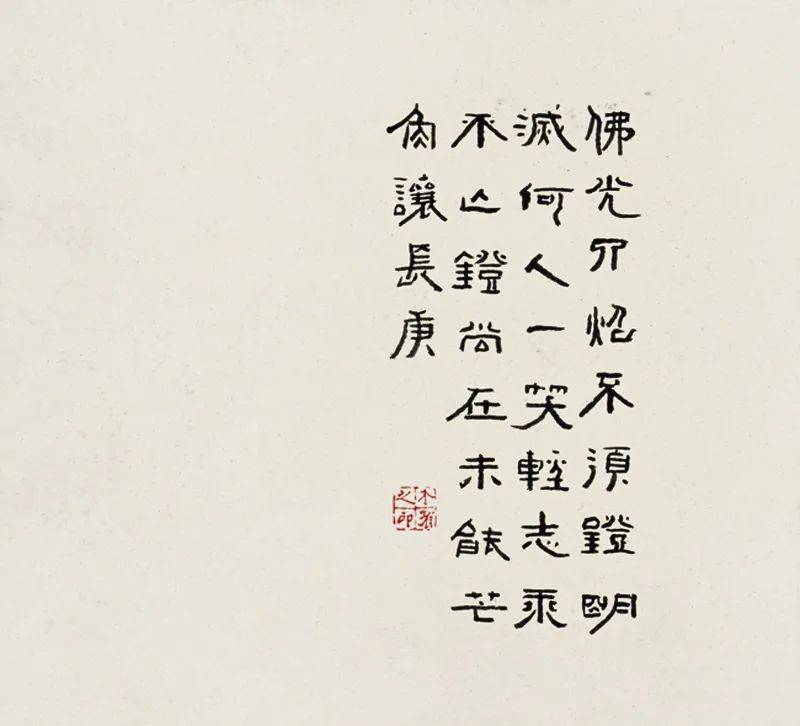 佛光炤不須鐙明
滅何人一笑輕志乘
不亾鐙尚在未能芒
角讓長庚